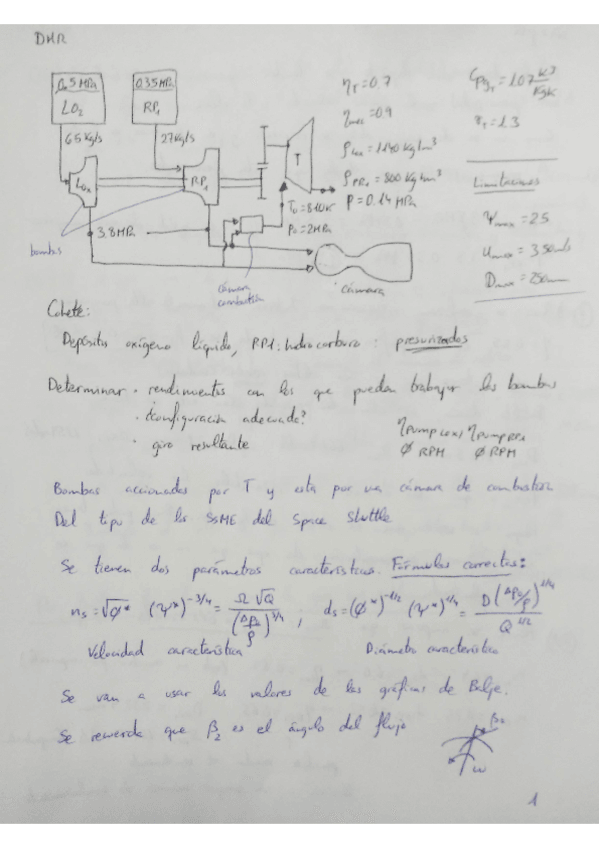 DMR
0.5 MPa
LO₂
0.35 MPa
RP₁
65 kg/s
27 kg/s
Lox
RP₁
T
3.8 MPa
bombas
T₀ = 810K
P₀ = 2MPa
P = 0.14 MPa
cámara combustión
cámara
η_T = 0.7
η_mec = 0.9
ρ_Lox = 1140 kg/m³
ρ_PR₁ = 800 kg/m³
Cp_gT = 1.07 kJ/kgK
γ_T = 1.3
Limitaciones
Ψ_max = 2.5
u_max = 350 m/s
Cohete:
Depósitos oxígeno líquido, RP1: hidrocarburo : presurizados
Determinar · rendimientos con los que pueden trabajar las bombas
· ¿configuración adecuada?
· giro resultante.
η_pump LOX / η_pump RP1
Ø RPM Ø RPM
Bombas accionadas por T y esta por una cámara de combustión
Del tipo de los SSME del Space Shuttle
Se tienen dos parámetros característicos. Fórmulas correctas:
n_s = √Ø* (Ψ*)^-3/4 = Ω √Q / (ΔP₀/ρ)^3/4 , d_s = (Ø*)^-1/2 (Ψ*)^1/4 = D (ΔP₀/ρ)^1/4 / Q^1/2
Velocidad característica
Diámetro característico
Se van a usar los valores de las gráficas de Balje.
Se recuerda que β₂ es el ángulo del flujo
β₂
ω
1